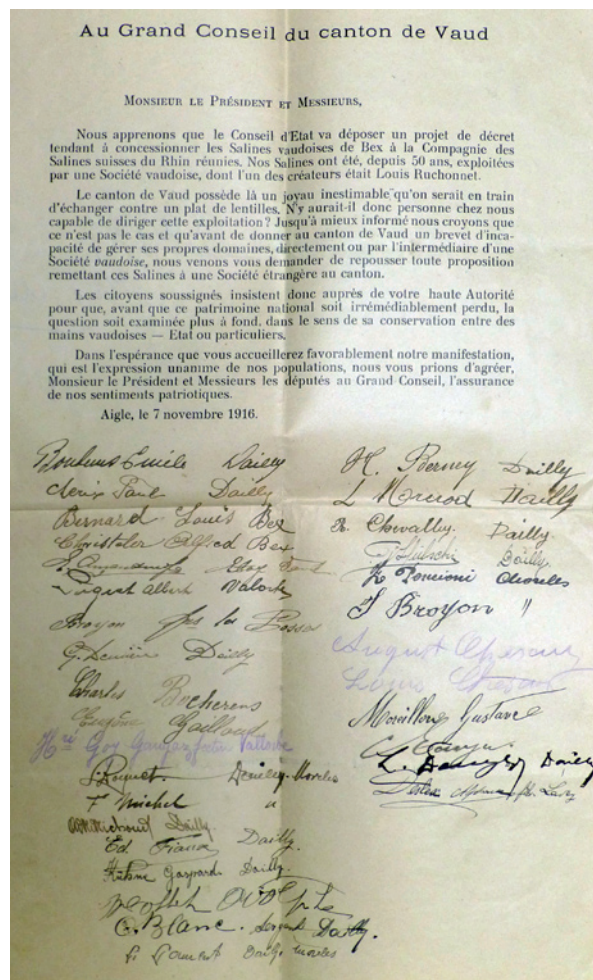 Au Grand Conseil du canton de Vaud
MONSIEUR LE PRÉSIDENT ET MESSIEURS,
Nous apprenons que le Conseil d'Etat va déposer un projet de décret
tendant à concessionner les Salines vaudoises de Bex à la Compagnie des
Salines suisses du Rhin réunies. Nos Salines ont été, depuis 50 ans, exploitées
par une Société vaudoise, dont l'un des créateurs était Louis Ruchonnet.
Le canton de Vaud possède là un joyau inestimable qu'on serait en train
d'échanger contre un plat de lentilles. N'y aurait-il donc personne chez nous
capable de diriger cette exploitation? Jusqu'à mieux informé nous croyons que
ce n'est pas le cas et qu'avant de donner au canton de Vaud un brevet d'inca-
pacité de gérer ses propres domaines, directement ou par l'intermédiaire d'une
Société vaudoise, nous venons vous demander de repousser toute proposition
remettant ces Salines à une Société étrangère au canton.
Les citoyens soussignés insistent donc auprès de votre haute Autorité
pour que, avant que ce patrimoine national soit irrémédiablement perdu, la
question soit examinée plus à fond, dans le sens de sa conservation entre des
mains vaudoises — Etat ou particuliers.
Dans l'espérance que vous accueillerez favorablement notre manifestation,
qui est l'expression unanime de nos populations, nous vous prions d'agréer,
Monsieur le Président et Messieurs les députés au Grand Conseil, l'assurance
de nos sentiments patriotiques.
Aigle, le 7 novembre 1916.
Emile Dailly
Paul Dailly
Bernard Louis Bex
Alfred Bex
Albert
Broyon
G. Dailly
Charles Bocherens
Gaillard
Hri Goy
F. Michel "
Dailly
Ed. Dailly.
Gaspard Dailly.
C. Blanc. Sergent Dailly.
H. Dailly
L Dailly
Chevalley. Dailly.
Dailly.
J Broyon "
August
Louis
Gustave
L. Dailly